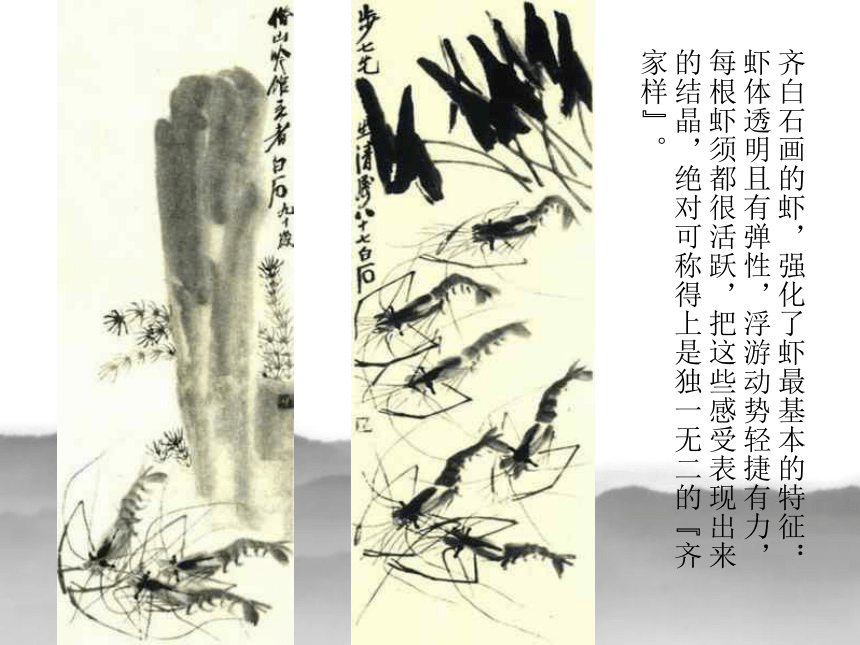 齐白石画的虾，强化了虾最基本的特征：
虾体透明且有弹性，浮游动势轻捷有力，
每根虾须都很活跃，把这些感受表现出来
的结晶，绝对可称得上是独一无二的『齐
家样』。
步七先生清属八十七白石
借山吟馆主者白石九十岁